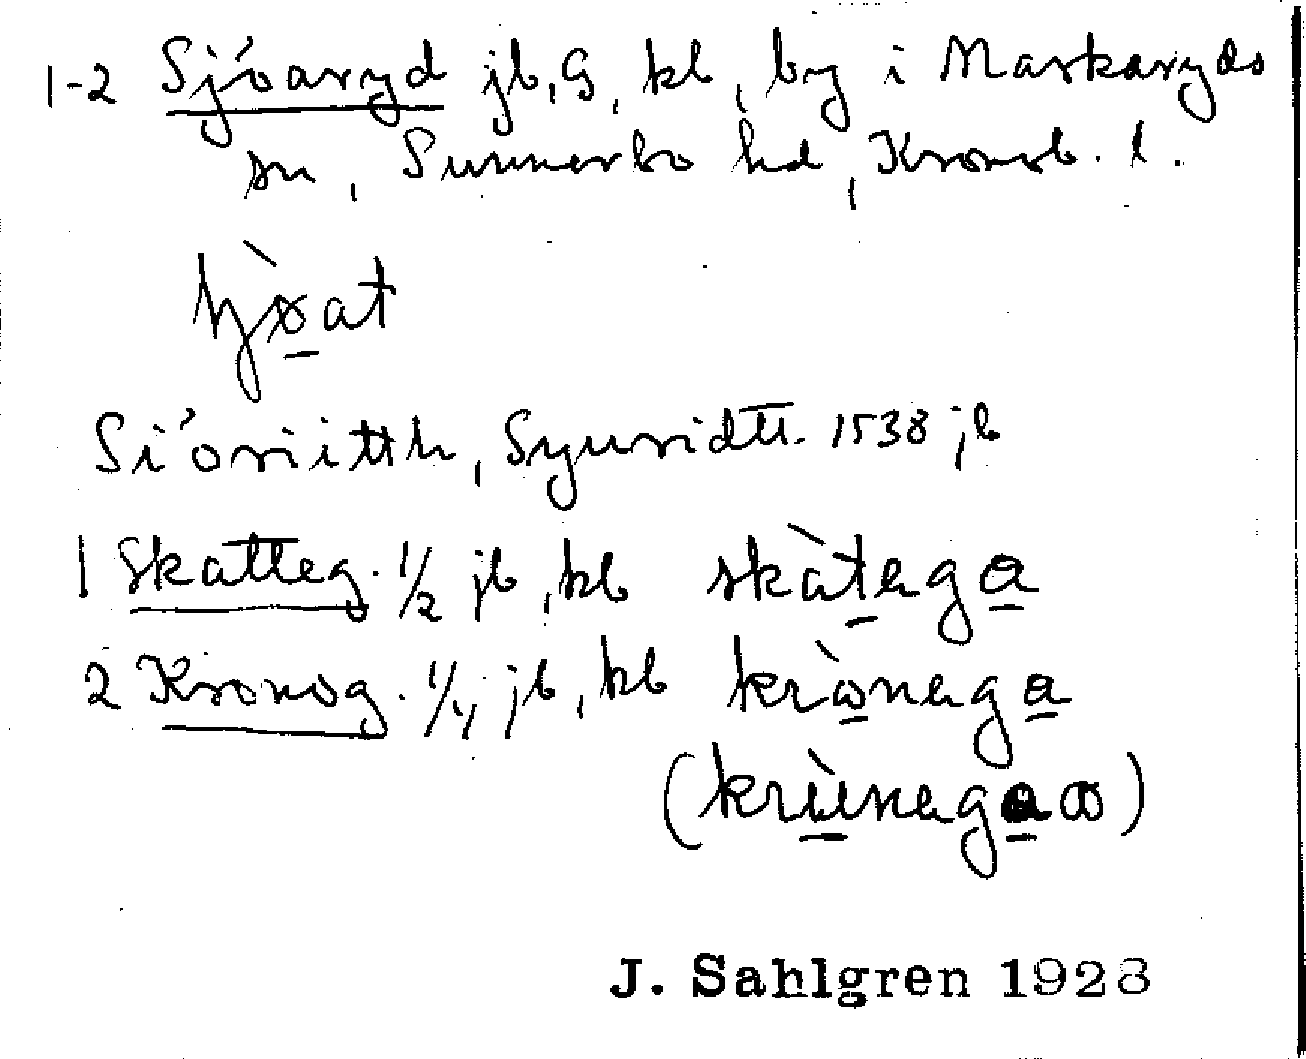 1-2 Sjöaryd jb, G, kb, by i Markaryds
sn, Sunnerbo hd, Kronob. l.
Siöriitth, Syuridtt. 1538 jb
1 Skatteg. 1/2 jb, kb skàtega
2 Kronog. 1/4 jb, kb krònega
J. Sahlgren 1928